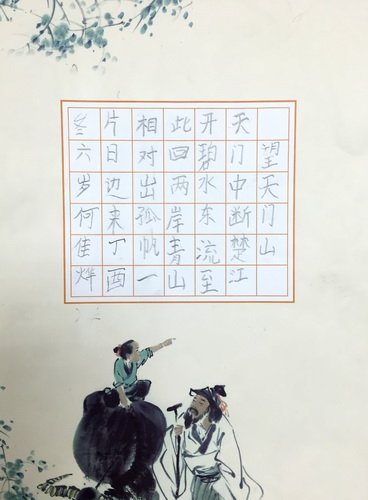 望天门山
天门中断楚江
开碧水东流至
此回两岸青山
相对出孤帆一
片日边来丁酉
冬六岁何佳烨